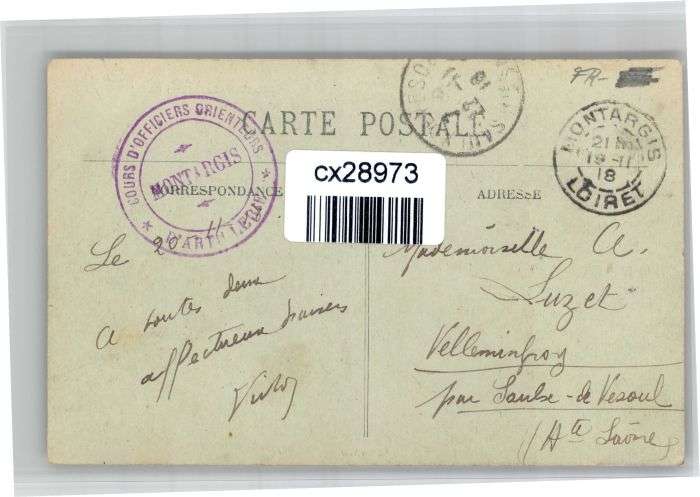 FR-
CARTE POSTALE
COURS D'OFFICIERS ORIENTEURS
MONTARGIS
D'ARTILLERIE
MONTARGIS
21
19-11
18
LOIRET
cx28973
CORRESPONDANCE
ADRESSE
Le 20 11
A toutes deux
affectueux baisers
Victor
Mademoiselle A.
Luzet
Velleminfroy
par Saulx-de Vesoul
(Hte Saône)